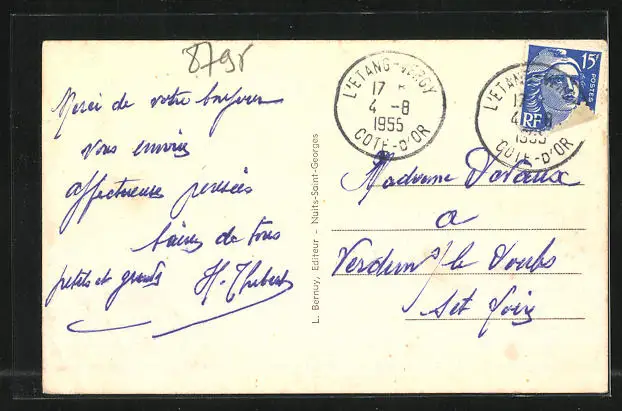 879r
Merci de votre bonjour
vous envoie
affectueuses pensées
baisers de tous
petits et grands H. Thibert
L. Bernuy, Editeur - Nuits-Saint-Georges
L'ETANG-VERGY
17 H
4 -8
1955
COTE-D'OR
L'ETANG-VERGY
17
4 -8
1955
COTE-D'OR
15F
POSTES
RF
Madame
a
Verdun s/ le Doubs